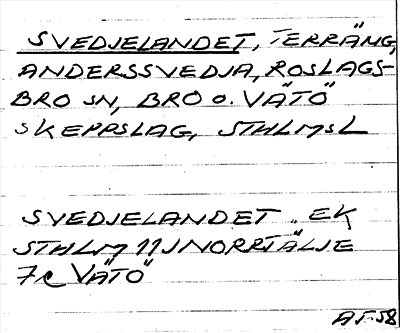 SVEDJELANDET, TERRÄNG,
ANDERSSVEDJA, ROSLAGS-
BRO SN, BRO O. VÄTÖ
SKEPPSLAG, STHLMSL
SVEDJELANDET " EK
STHLM 11J NORRTÄLJE
7c VÄTÖ
AF. 58